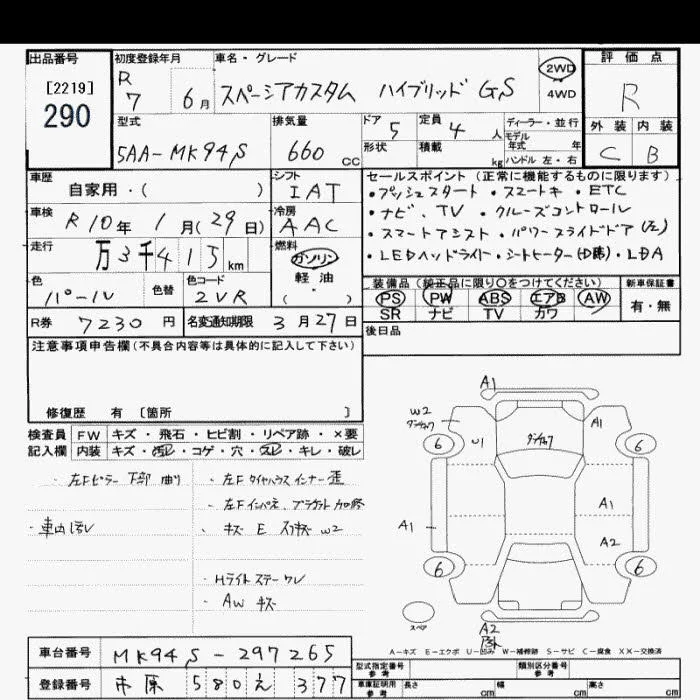 出品番号
[2219]
290
初度登録年月
R 7 6月
車名・グレード
スペーシアカスタム ハイブリッド GS
2WD
4WD
評価点
R
外装 内装
C B
型式
5AA-MK94S
排気量
660 CC
ドア 5
形状
定員 4 人
積載 kg
ディーラー・並行
モデル年式 年
ハンドル 左・右
車歴
自家用・( )
シフト
IAT
車検 R10年 1月(29日)
冷房
AAC
走行
万3千415 km
燃料
ガソリン
軽油
( )
色
パール
色替
色コード
2VR
R券 7230円
名変通知期限 3月27日
セールスポイント(正常に機能するものに限ります)
・プッシュスタート・スマートキー・ETC
・ナビ、TV・クルーズコントロール
・スマートアシスト・パワースライドドア(左)
・LEDヘッドライト・シートヒーター(D席)・LDA
装備品(純正品に限り○をつけてください)
PS PW ABS エアB AW
SR ナビ TV カワ
新車保証書
有・無
後日品
注意事項申告欄(不具合内容等は具体的に記入して下さい)
修復歴 有〔箇所 〕
検査員記入欄
FW キズ・飛石・ヒビ割・リペア跡・×要
内装 キズ・汚レ・コゲ・穴・スレ・キレ・破レ
・左Fピラー下部曲り
・左Fタイヤハウスインナー歪
・左Fインパネ、ブラケット加修
・車内汚レ
・キズ E スリキズ W2
・Hライトステーワレ
・AWキズ
A1
W2
A1
6
U1
6
A1
A1
A2
6
6
スペア
A2
A-キズ E-エクボ U-凹み W-補修跡 S-サビ C-腐食 XX-交換済
車台番号 MK94S-297265
登録番号 市原 580え 377
型式指定番号
参考
類別区分番号
参考
車庫証明用
参考
長さ cm 幅 cm 高さ cm